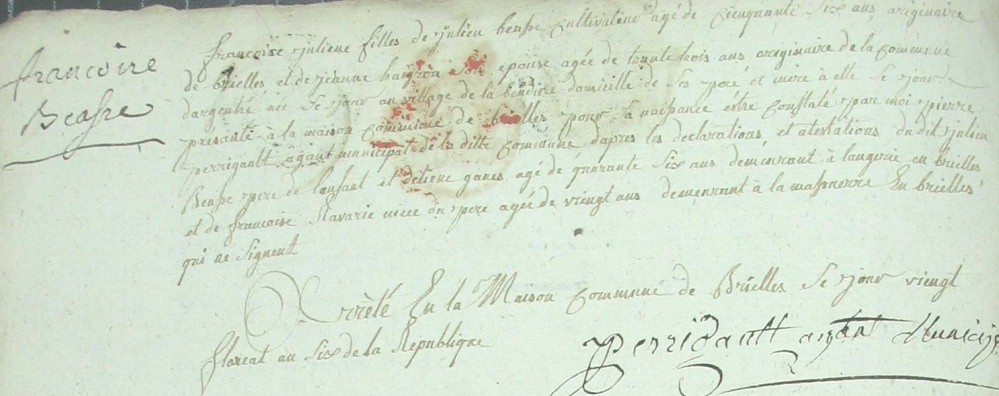 françoise
Beasse
françoise juliene filles de julien beasse Cultivateur agé de Cienquante Six ans originaire
de brielles et de jeanne son epouse agée de trante trois ans originaire de la Commune
dargentré née Se jour au village de la domicille de Ses peré et mere à elle Se jour
presanté à la maison Commune de brielles pour Sa naissance estre Constaté par moi pierre
perrigault agant municipal de la ditte Commune dapres les declarations et atestations du dit julien
Beasse pere de lenfant et detiene agé de quarante Six ans demeurant à en brielles
et de françoise niece du pere agée de vieingt ans demeurant à la En brielles
qui ne Signent
Arrèté En la Maison Commune de Brielles Se jour vieingt
floreal an Six de la Republique
Perrigault agent Municip